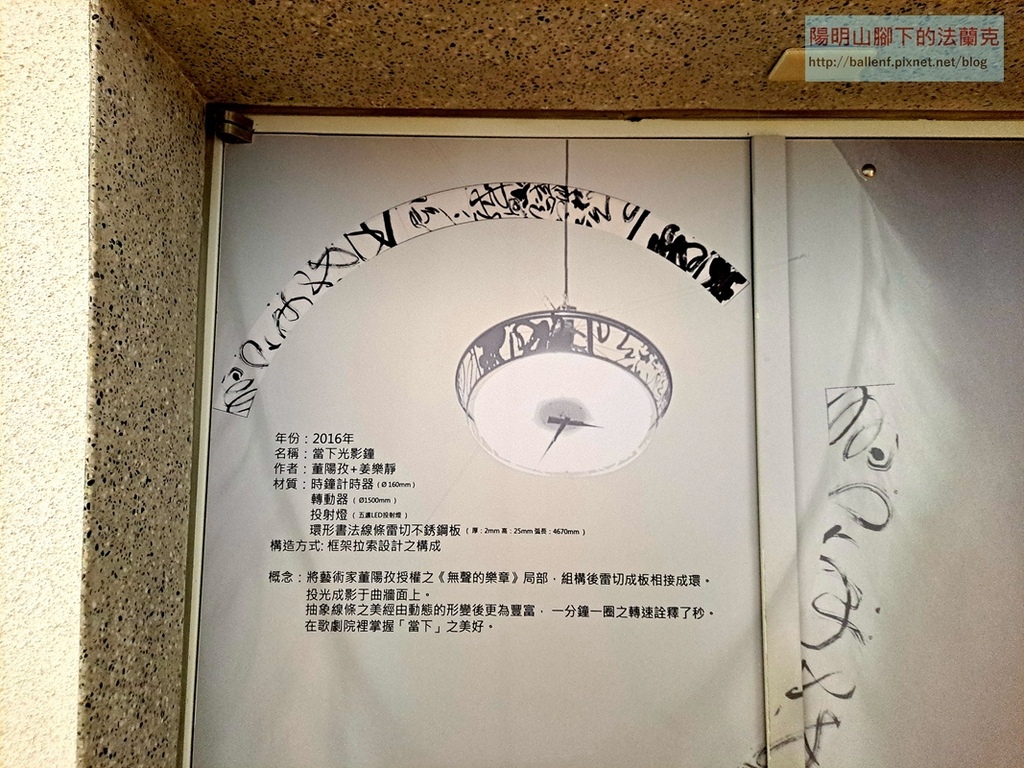 陽明山腳下的法蘭克
http://ballenf.pixnet.net/blog
年份：2016年
名稱：當下光影鐘
作者：董陽孜+姜樂靜
材質：時鐘計時器（Ø 160mm）
轉動器（Ø1500mm）
投射燈（五盞LED投射燈）
環形書法線條雷切不銹鋼板（厚：2mm 高：25mm 弧長：4670mm）
構造方式: 框架拉索設計之構成
概念：將藝術家董陽孜授權之《無聲的樂章》局部，組構後雷切成板相接成環。
投光成影于曲牆面上。
抽象線條之美經由動態的形變後更為豐富，一分鐘一圈之轉速詮釋了秒。
在歌劇院裡掌握「當下」之美好。